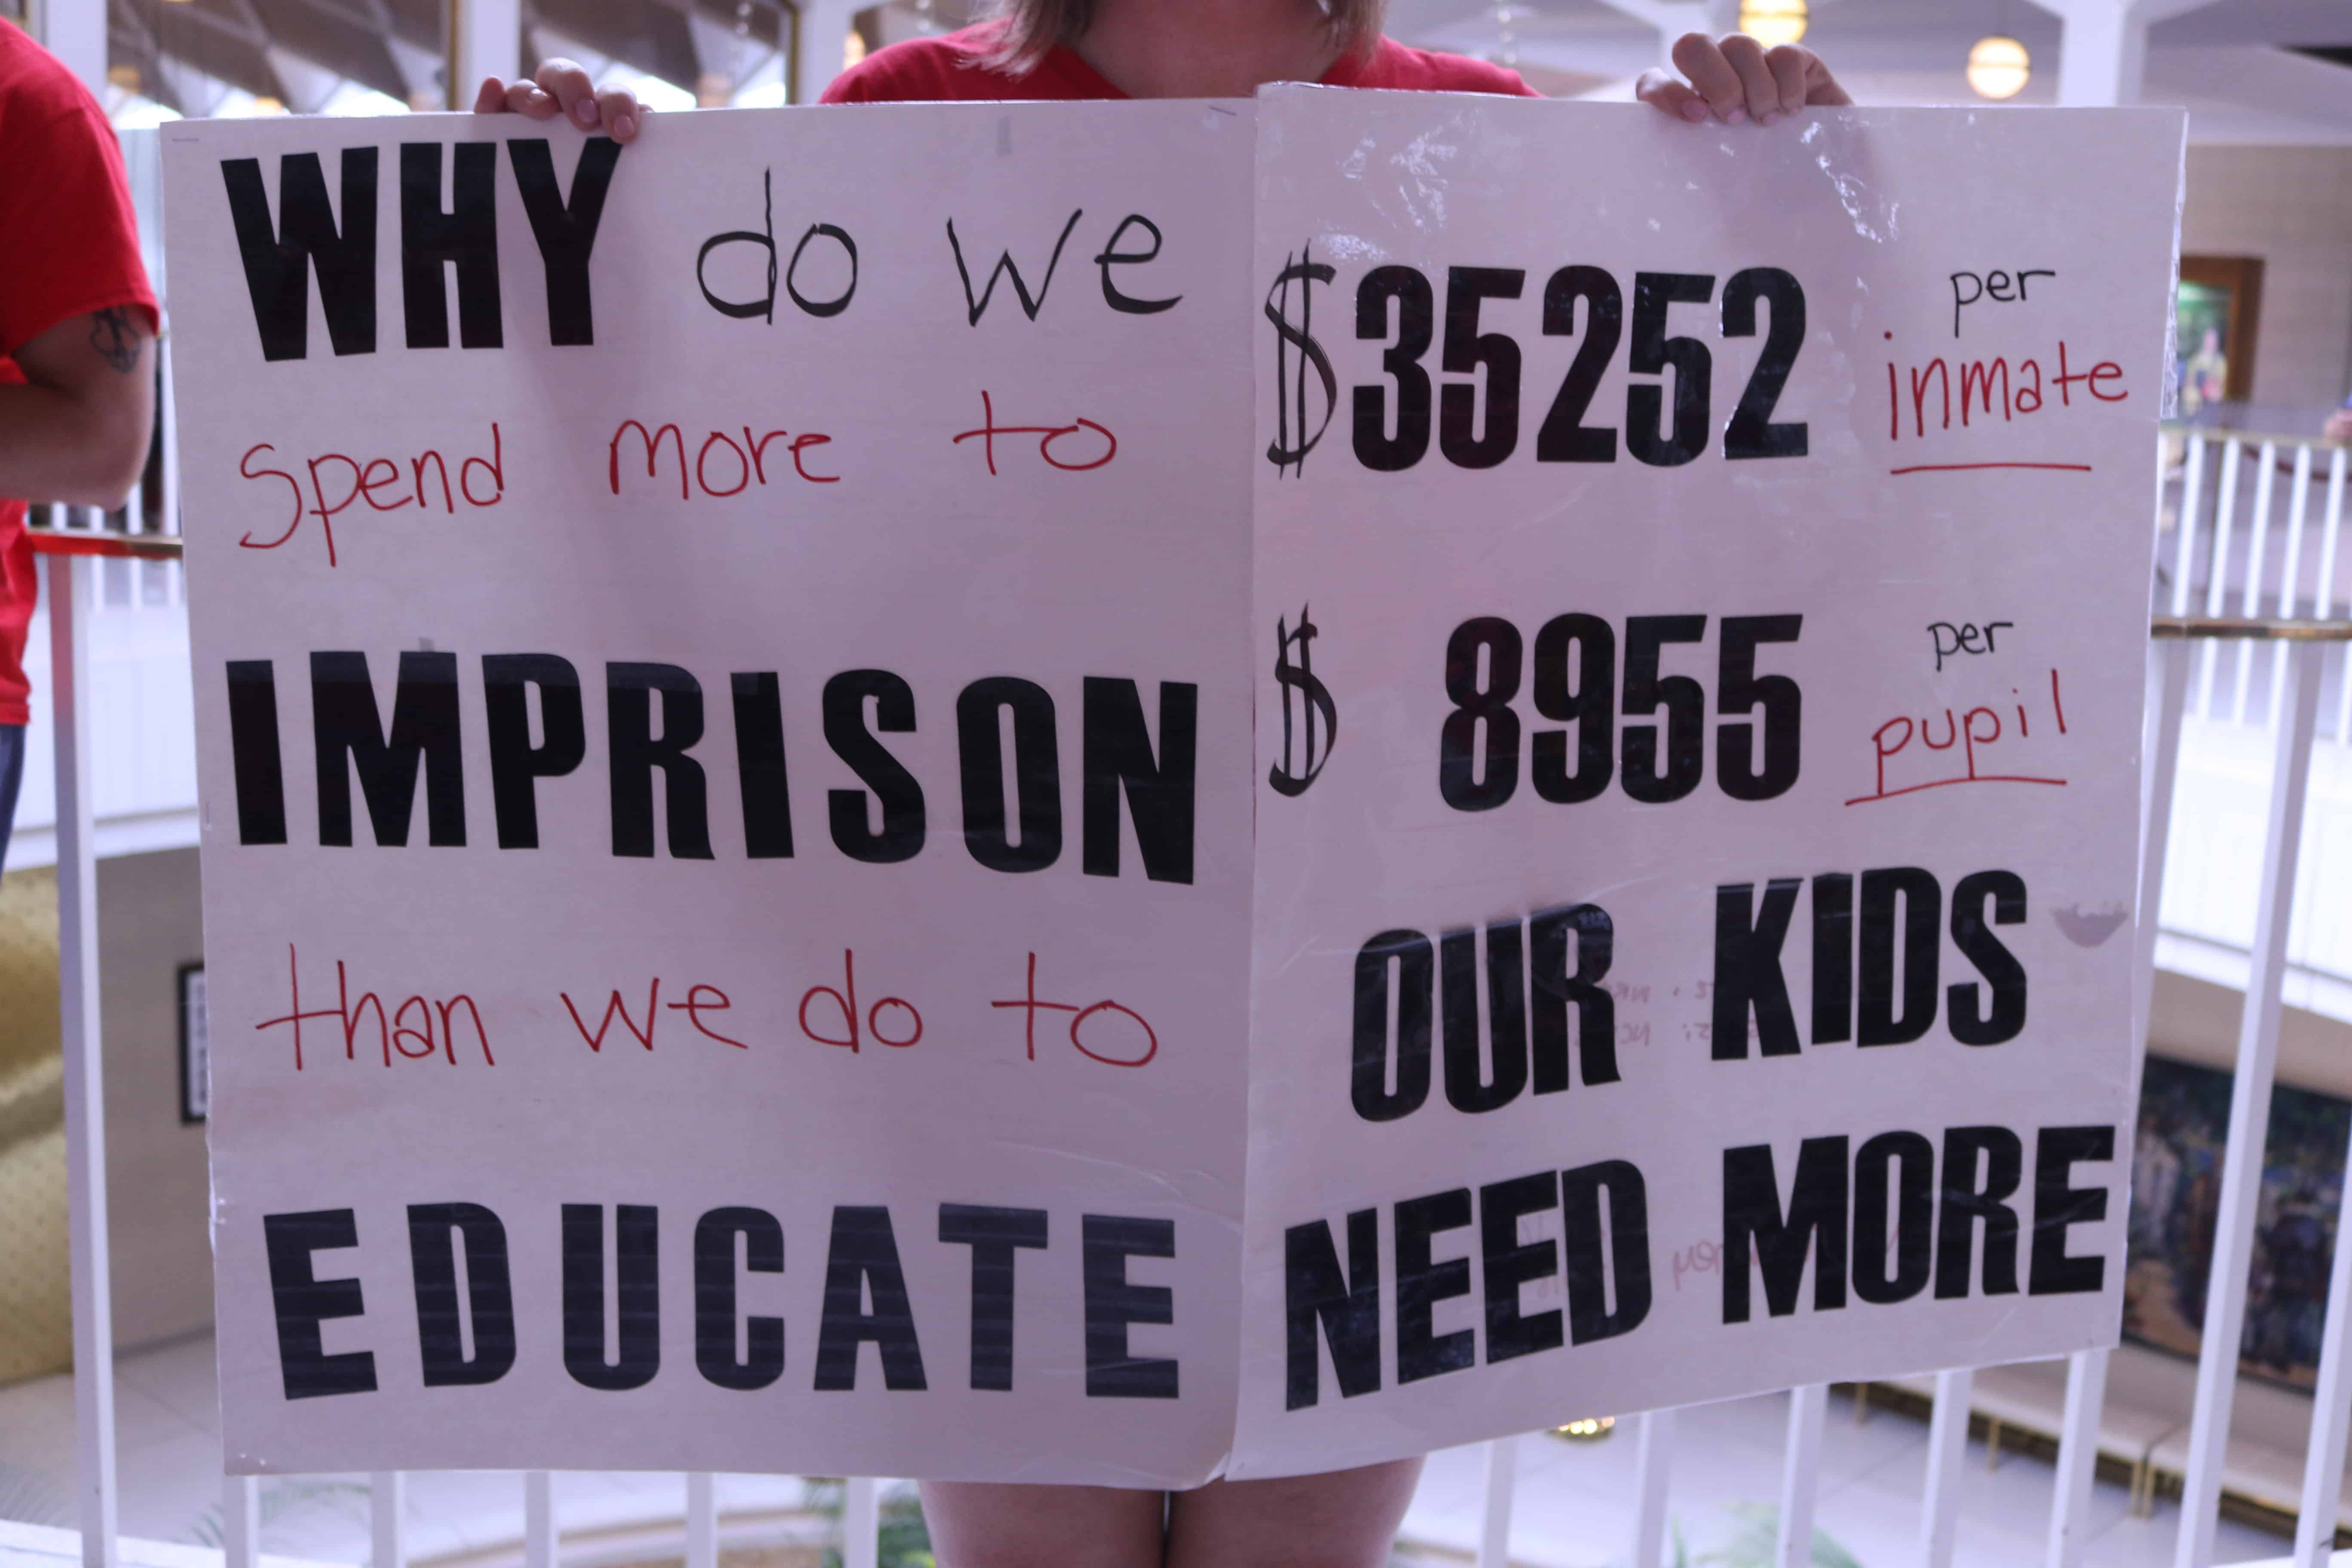 WHY do we
spend more to
IMPRISON
than we do to
EDUCATE
$35252 per
inmate
$ 8955 per
pupil
OUR KIDS
NEED MORE